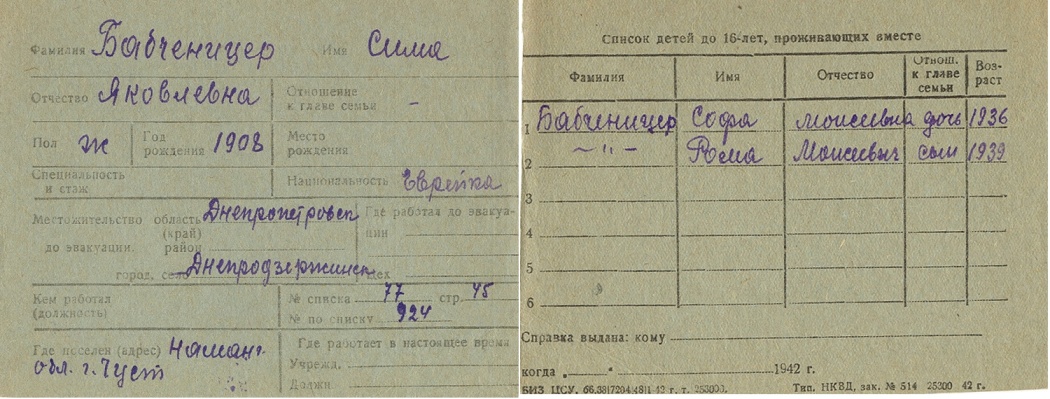 Фамилия Бабченицер Имя Сима
Отчество Яковлевна Отношение к главе семьи –
Пол ж Год рождения 1908 Место рождения
Специальность и стаж Национальность Еврейка
Местожительство до эвакуации область (край) Днепропетровск Где работал до эвакуа-
район ции
город, село Днепродзержинск Цех
Кем работал (должность) № списка 77 стр. 45
№ по списку 924
Где поселен (адрес) Наманг. Где работает в настоящее время
обл. г. Чуст Учрежд.
Должн.
Список детей до 16-лет, проживающих вместе
Фамилия Имя Отчество Отнош. к главе семьи Воз-раст
1 Бабченицер Софа Моисеевна дочь 1936
2 – " – Рома Моисеевич сын 1939
3
4
5
6
Справка выдана: кому
когда „ “ 1942 г.
БИЗ ЦСУ. Тип. НКВД, зак. № 514 25300 42 г.